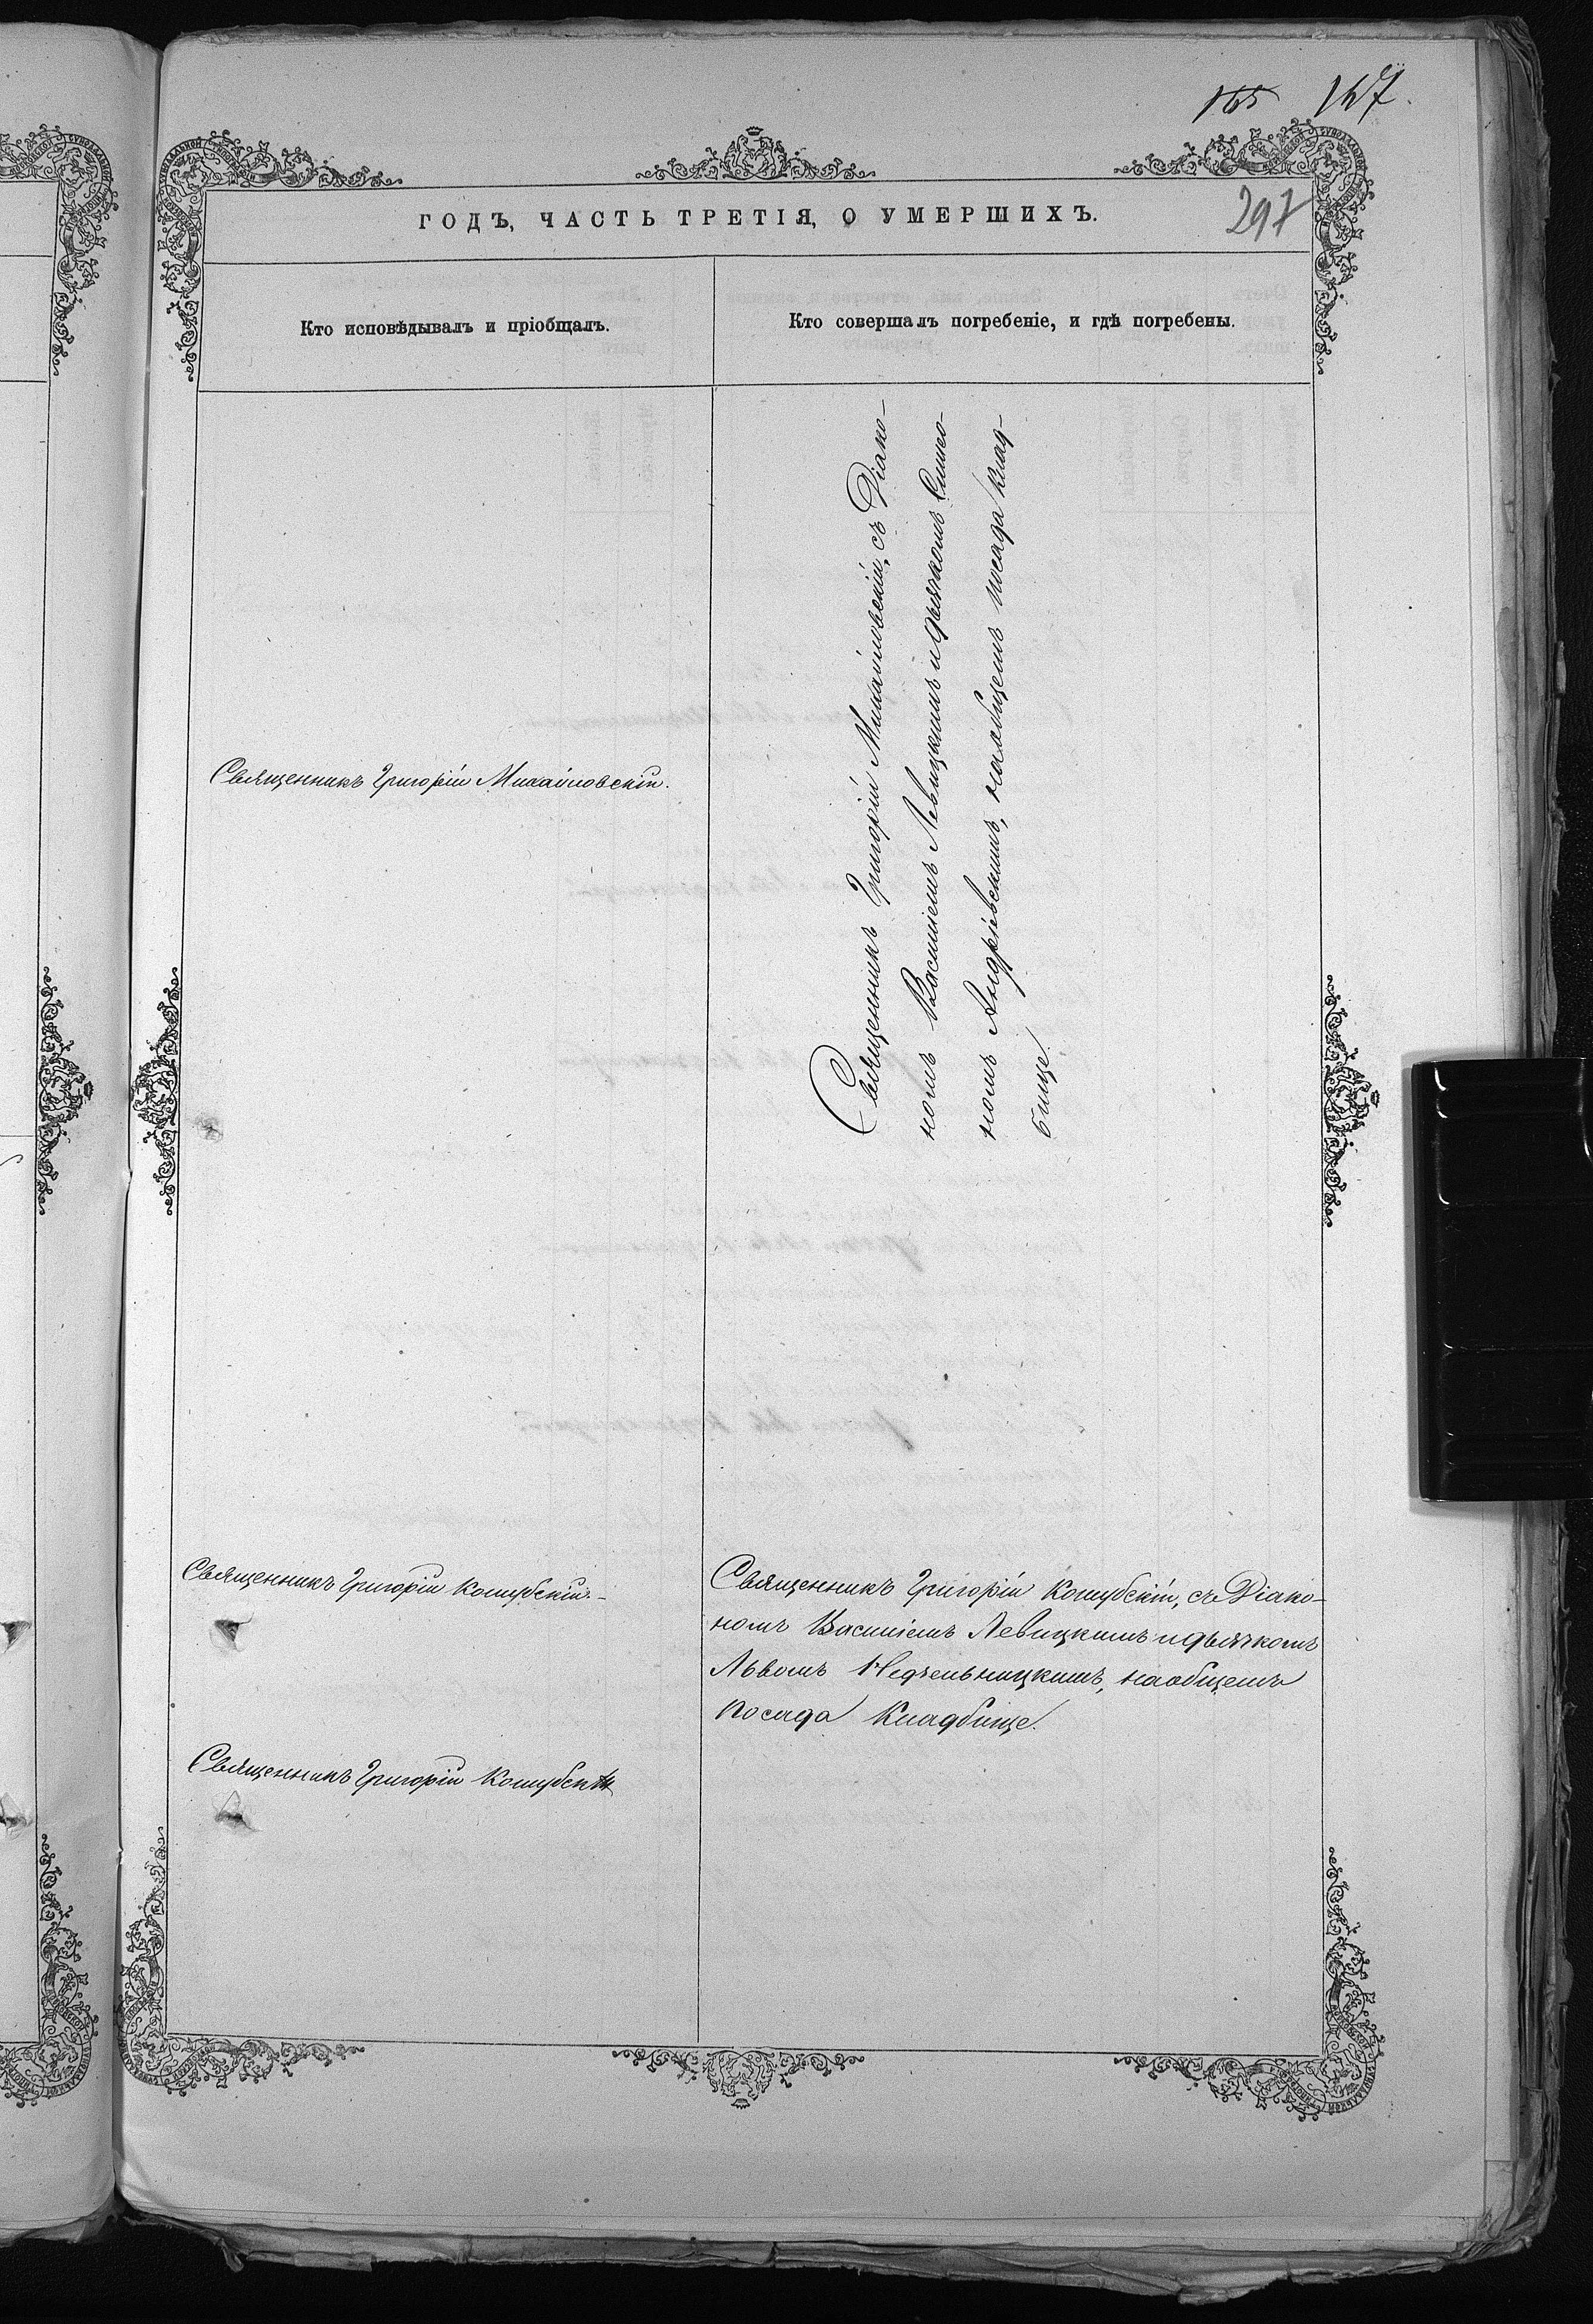 165 167.
297
ГОДЪ, ЧАСТЬ ТРЕТІЯ, О УМЕРШИХЪ.
Кто исповѣдывалъ и пріобщалъ.
Кто совершалъ погребеніе, и гдѣ погребены.
Священникъ Григорій Михайловскій.
Священникъ Григорій Михайловскій, съ Діако-
номъ Василіемъ Левицкимъ и дьячкомъ Симео-
номъ Андріевскимъ, на общемъ посада клад-
бище.
Священникъ Григорій Кошубскій.-
Священникъ Григорій Кошубскій, съ Діако-
номъ Василіемъ Левицкимъ и дьячкомъ
Львомъ Недѣльницкимъ, на общемъ
посада Кладбище.
Священникъ Григорій Кошубскій